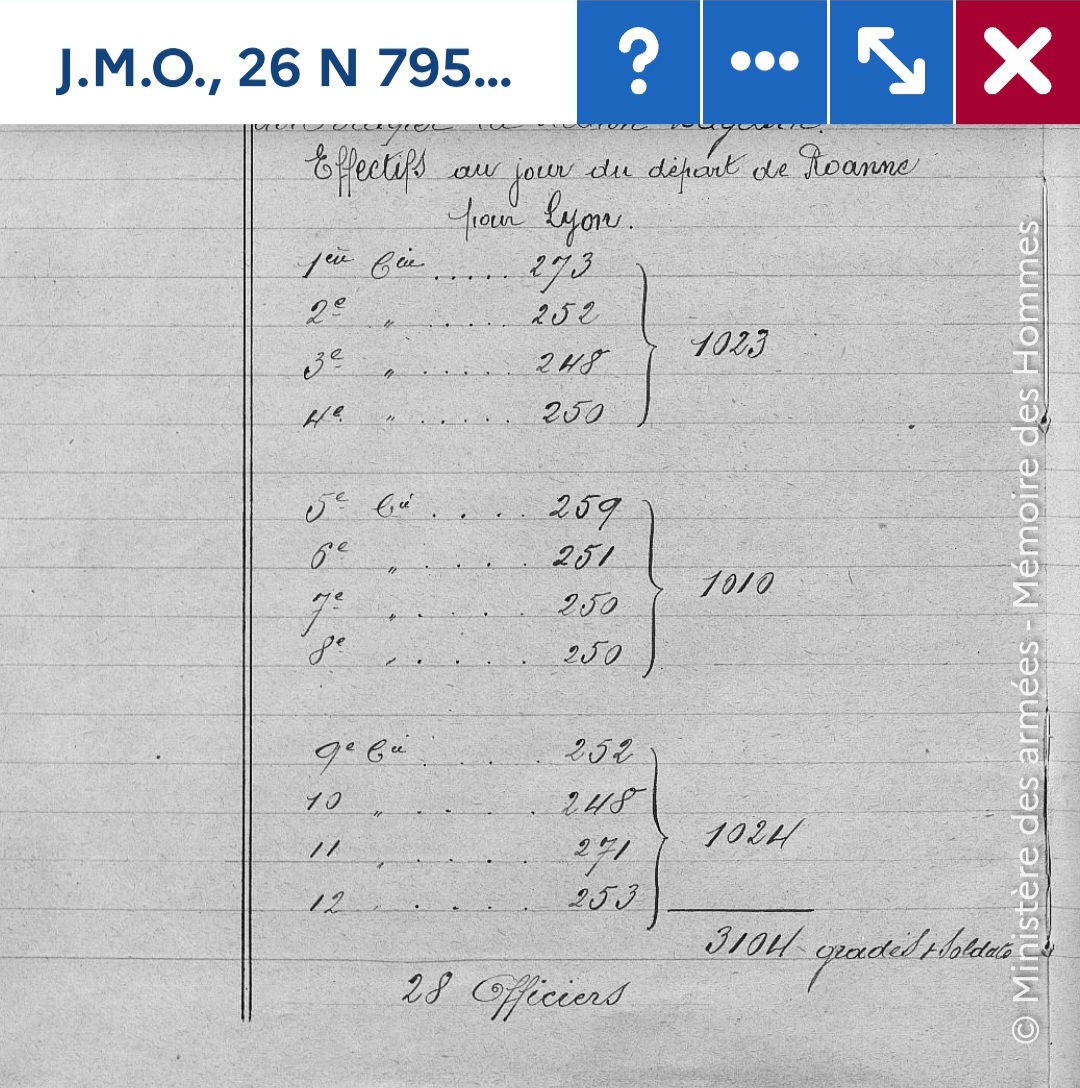 J.M.O., 26 N 795...
Effectifs au jour du départ de Roanne
pour Lyon.
1ère Cie ..... 273
2e " ..... 252
3e " ..... 248
4e " ..... 250
1023
5e Cie .... 259
6e " .... 251
7e " .... 250
8e " .... 250
1010
9e Cie .... 252
10 " .... 248
11 " .... 271
12 " .... 253
1024
3104 gradés & soldats
28 Officiers
© Ministère des armées - Mémoire des Hommes